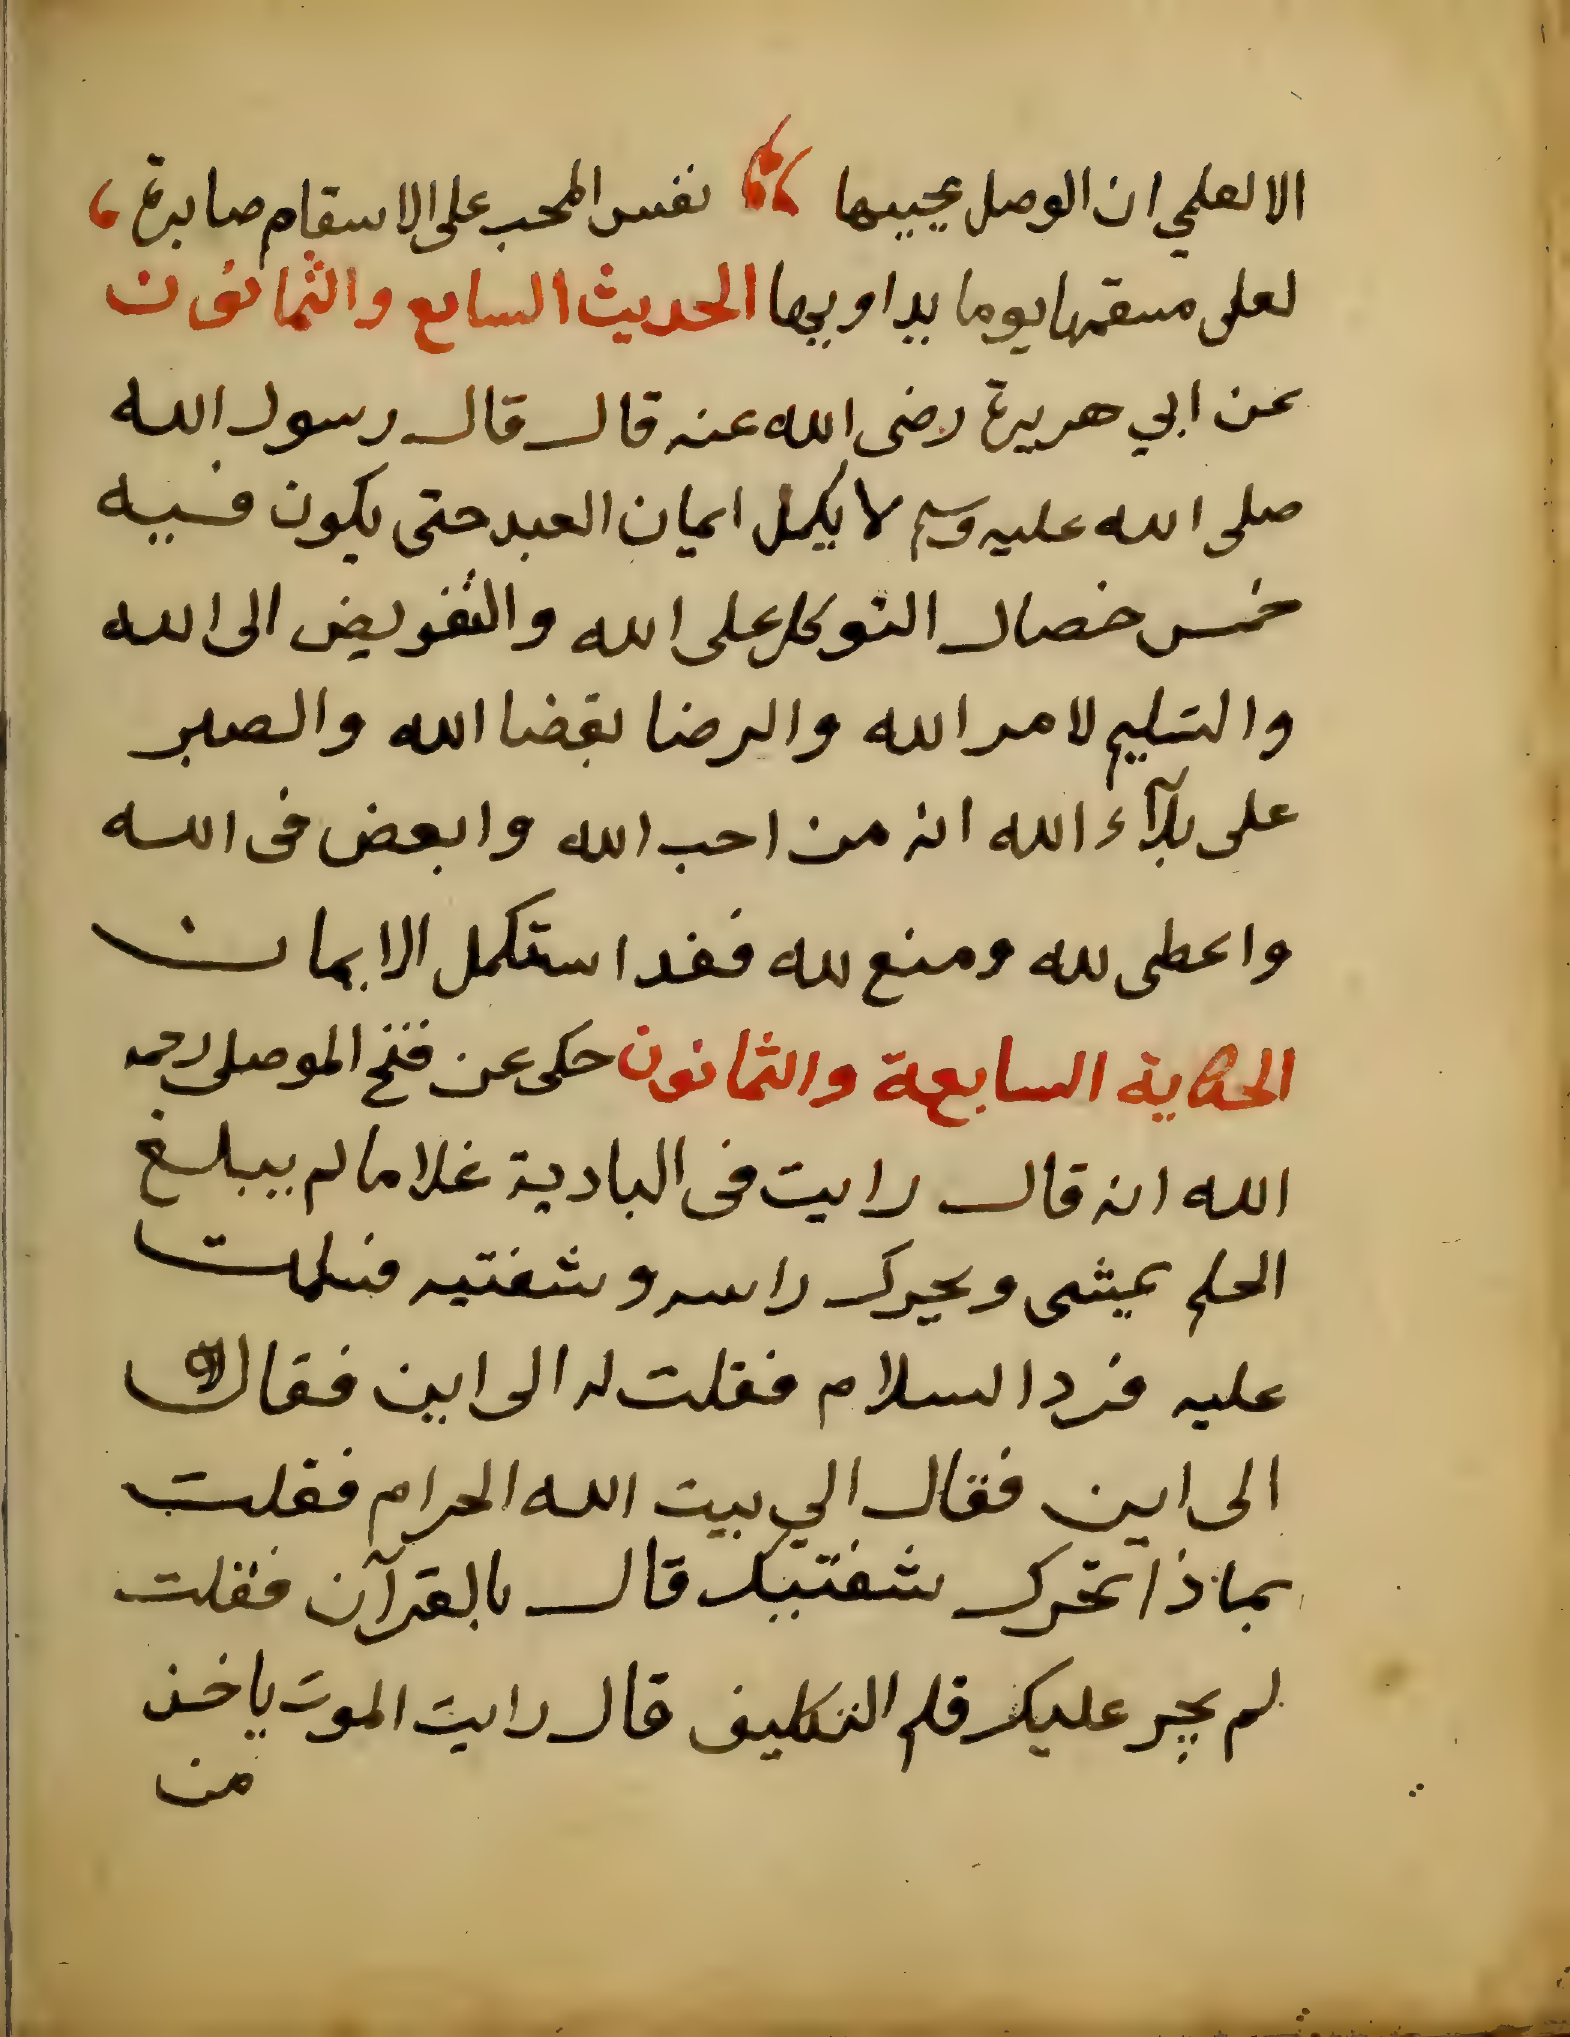 الا لعلمي ان الوصل يحييها نفس المحب على الاسقام صابرة
لعلى مسقمها يوما يداويها الحديث السابع والثمانون
عن ابي هريرة رضى الله عنه قال قال رسول الله
صلى الله عليه وسم لا يكمل ايمان العبد حتى يكون فيه
خمس خصال التوكل على الله والتفويض الى الله
والتسليم لامر الله والرضا بقضا الله والصبر
على بلآء الله انه من احب الله وابعض فى الله
واعطى لله ومنع لله فقد استكمل الايمان
الحكاية السابعة والثمانون حكى عن فتح الموصلى رحمه
الله انه قال رايت فى البادية غلاما لم يبلغ
الحلم يمشى ويحرك راسه وشفتيه فسلمت
عليه فرد السلام فقلت له الى اين فقال
الى اين فقال الي بيت الله الحرام فقلت
بماذا تحرك شفتيك قال بالقرآن فقلت
لم يجر عليك قلم التكليف قال رايت الموت ياخذ
من